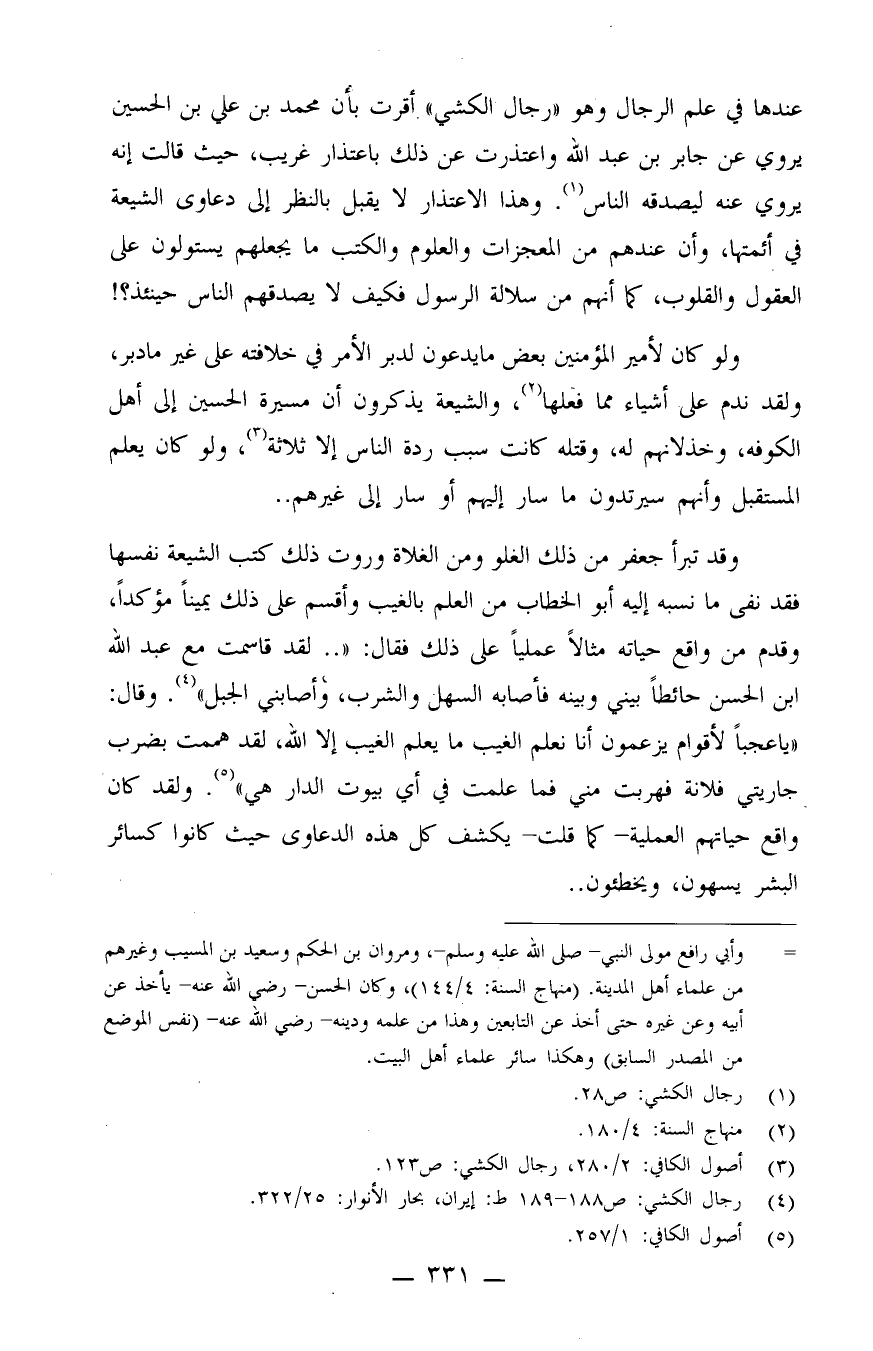 عندها في علم الرجال وهو «رجال الكشي» أقرت بأن محمد بن علي بن الحسين
يروي عن جابر بن عبد الله واعتذرت عن ذلك باعتذار غريب، حيث قالت إنه
يروي عنه ليصدقه الناس(١). وهذا الاعتذار لا يقبل بالنظر إلى دعاوى الشيعة
في أئمتها، وأن عندهم من المعجزات والعلوم والكتب ما يجعلهم يستولون على
العقول والقلوب، كما أنهم من سلالة الرسول فكيف لا يصدقهم الناس حينئذ؟!
ولو كان لأمير المؤمنين بعض مايدعون لدبر الأمر في خلافته على غير مادبر،
ولقد ندم على أشياء مما فعلها(٢)، والشيعة يذكرون أن مسيرة الحسين إلى أهل
الكوفه، وخذلانهم له، وقتله كانت سبب ردة الناس إلا ثلاثة(٣)، ولو كان يعلم
المستقبل وأنهم سيرتدون ما سار إليهم أو سار إلى غيرهم..
وقد تبرأ جعفر من ذلك الغلو ومن الغلاة وروت ذلك كتب الشيعة نفسها
فقد نفى ما نسبه إليه أبو الخطاب من العلم بالغيب وأقسم على ذلك يميناً مؤكداً،
وقدم من واقع حياته مثالاً عملياً على ذلك فقال: «.. لقد قاسمت مع عبد الله
ابن الحسن حائطاً بيني وبينه فأصابه السهل والشرب، وأصابني الجبل»(٤). وقال:
«ياعجباً لأقوام يزعمون أنا نعلم الغيب ما يعلم الغيب إلا الله، لقد هممت بضرب
جاريتي فلانة فهربت مني فما علمت في أي بيوت الدار هي»(٥). ولقد كان
واقع حياتهم العملية– كما قلت– يكشف كل هذه الدعاوى حيث كانوا كسائر
البشر يسهون، ويخطئون..
= وأبي رافع مولى النبي– صلى الله عليه وسلم–، ومروان بن الحكم وسعيد بن المسيب وغيرهم
من علماء أهل المدينة. (منهاج السنة: ١٤٤/٤)، وكان الحسن– رضي الله عنه– يأخذ عن
أبيه وعن غيره حتى أخذ عن التابعين وهذا من علمه ودينه– رضي الله عنه– (نفس الموضع
من المصدر السابق) وهكذا سائر علماء أهل البيت.
(١) رجال الكشي: ص٢٨.
(٢) منهاج السنة: ١٨٠/٤.
(٣) أصول الكافي: ٢٨٠/٢، رجال الكشي: ص١٢٣.
(٤) رجال الكشي: ص١٨٨–١٨٩ ط: إيران، بحار الأنوار: ٣٢٢/٢٥.
(٥) أصول الكافي: ٢٥٧/١.
— ٣٣١ —